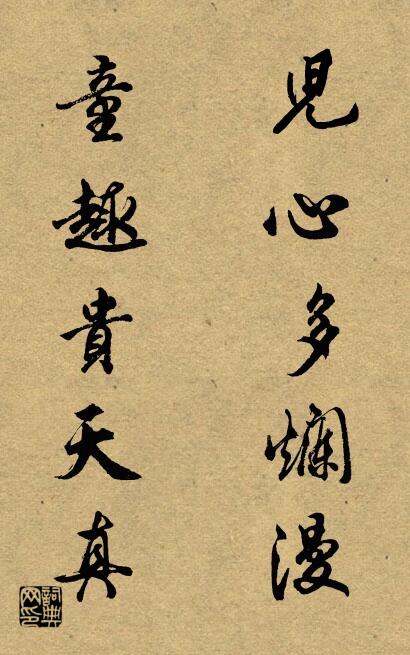 兒心多爛漫
童趣貴天真
詞典网印